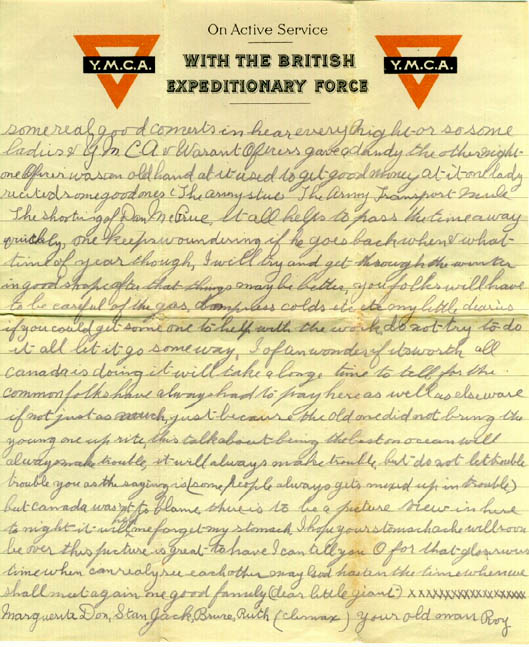 On Active Service
WITH THE BRITISH
EXPEDITIONARY FORCE
Y.M.C.A.
Y.M.C.A.
some real good concerts in hear every night or so some
ladies & Y M C A & Warant Officers gave a dandy the other night
one Officer was an old hand at it used to get good money at it one lady
recited some good ones (The army stue The Army Transport Mule
The shooting of Dan McGrue. It all helps to pass the time away
quickly, one keeps woundering if he goes back when & what
time of year though, I will try and get through the winter
in good shape after that things may be better, you folks will have
to be careful of the gas, colds etc my little dearies
if you could get some one to help with the work do not try to do
it all let it go some way, I ofan wonder if its worth all
canada is doing it will take a longe time to tell, for the
common folks have always had to pay here as well as elseware
if not just as much, just because the old one did not bring the
young one up rite, this talk about being the best on ocean will
always make trouble, it will always make trouble, but do not let trouble
trouble you as the saying is (some people always gets mixed up in trouble)
but canada wasnt to blame there is to be a picture view in here
to night it will me forget my stomach, I hope your stomachache will soon
be over this picture is great to have I can tell you O for that glourious
time when can realy see each other may God hasten the time when we
shall meet again one good family (dear little giant) xxxxxxxxxxxxxx
Marguerite Don, Stan Jack, Bruce, Ruth (climax) your old man Roy